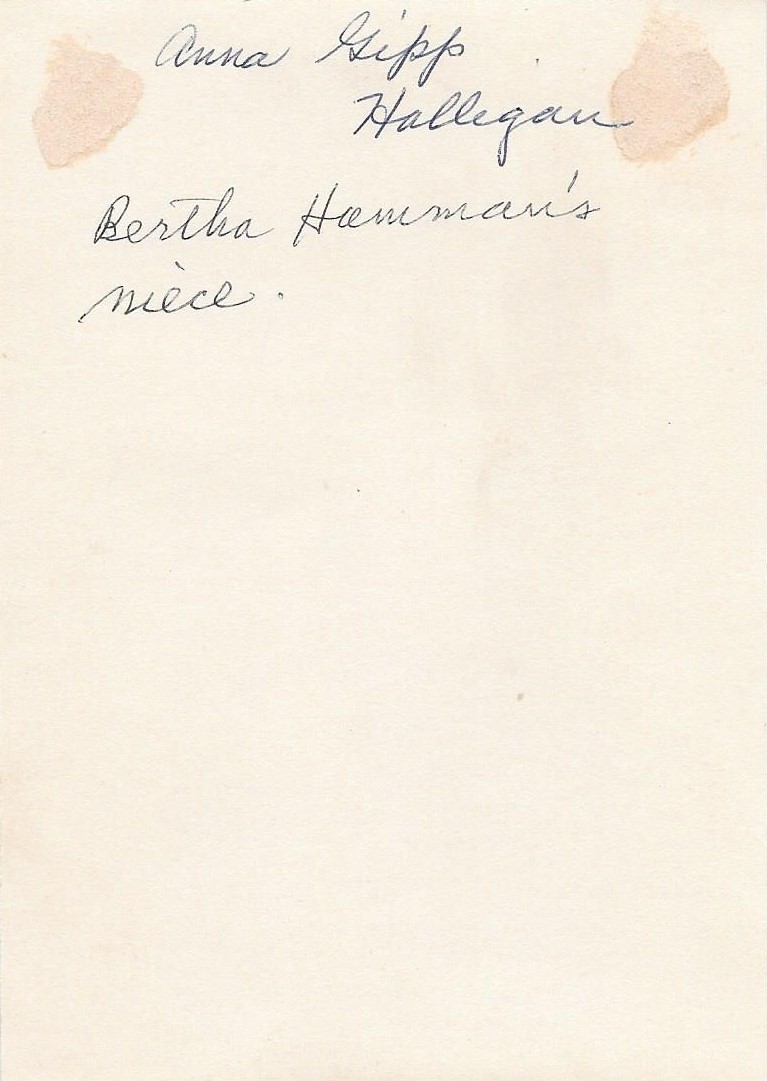 Anna Gipp
Hallegan
Bertha Hamman's
niece.